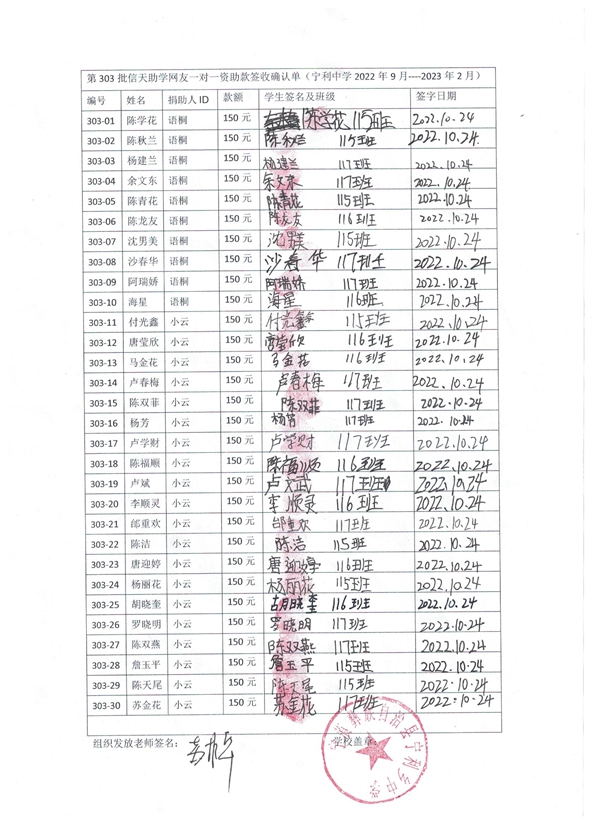 第 303 批信天助学网友一对一资助款签收确认单（宁利中学 2022 年 9 月----2023 年 2 月）
编号 姓名 捐助人 ID 款额 学生签名及班级 签字日期
303-01 陈学花 语桐 150 元 陈学花 115班 2022.10.24
303-02 陈秋兰 语桐 150 元 陈秋兰 115班 2022.10.24
303-03 杨建兰 语桐 150 元 杨建兰 117班 2022.10.24
303-04 余文东 语桐 150 元 余文东 117班 2022.10.24
303-05 陈青花 语桐 150 元 陈青花 115班 2022.10.24
303-06 陈龙友 语桐 150 元 陈龙友 116班 2022.10.24
303-07 沈男美 语桐 150 元 沈男美 115班 2022.10.24
303-08 沙春华 语桐 150 元 沙春华 117班 2022.10.24
303-09 阿瑞娇 语桐 150 元 阿瑞娇 117班 2022.10.24
303-10 海星 语桐 150 元 海星 116班 2022.10.24
303-11 付光鑫 小云 150 元 付光鑫 115班 2022.10.24
303-12 唐莹欣 小云 150 元 唐莹欣 116班 2022.10.24
303-13 马金花 小云 150 元 马金花 116班 2022.10.24
303-14 卢春梅 小云 150 元 卢春梅 117班 2022.10.24
303-15 陈双菲 小云 150 元 陈双菲 117班 2022.10.24
303-16 杨芳 小云 150 元 杨芳 117班 2022.10.24
303-17 卢学财 小云 150 元 卢学财 117班 2022.10.24
303-18 陈福顺 小云 150 元 陈福顺 116班 2022.10.24
303-19 卢斌 小云 150 元 卢文武 117班 2022.10.24
303-20 李顺灵 小云 150 元 李顺灵 116班 2022.10.24
303-21 邰重欢 小云 150 元 邰重欢 117班 2022.10.24
303-22 陈洁 小云 150 元 陈洁 115班 2022.10.24
303-23 唐迎婷 小云 150 元 唐迎婷 116班 2022.10.24
303-24 杨丽花 小云 150 元 杨丽花 115班 2022.10.24
303-25 胡晓奎 小云 150 元 胡晓奎 116班 2022.10.24
303-26 罗晓明 小云 150 元 罗晓明 117班 2022.10.24
303-27 陈双燕 小云 150 元 陈双燕 117班 2022.10.24
303-28 詹玉平 小云 150 元 詹玉平 115班 2022.10.24
303-29 陈天尾 小云 150 元 陈天尾 115班 2022.10.24
303-30 苏金花 小云 150 元 苏金花 117班 2022.10.24
组织发放老师签名： 学校盖章：
彝族自治县宁利乡中学